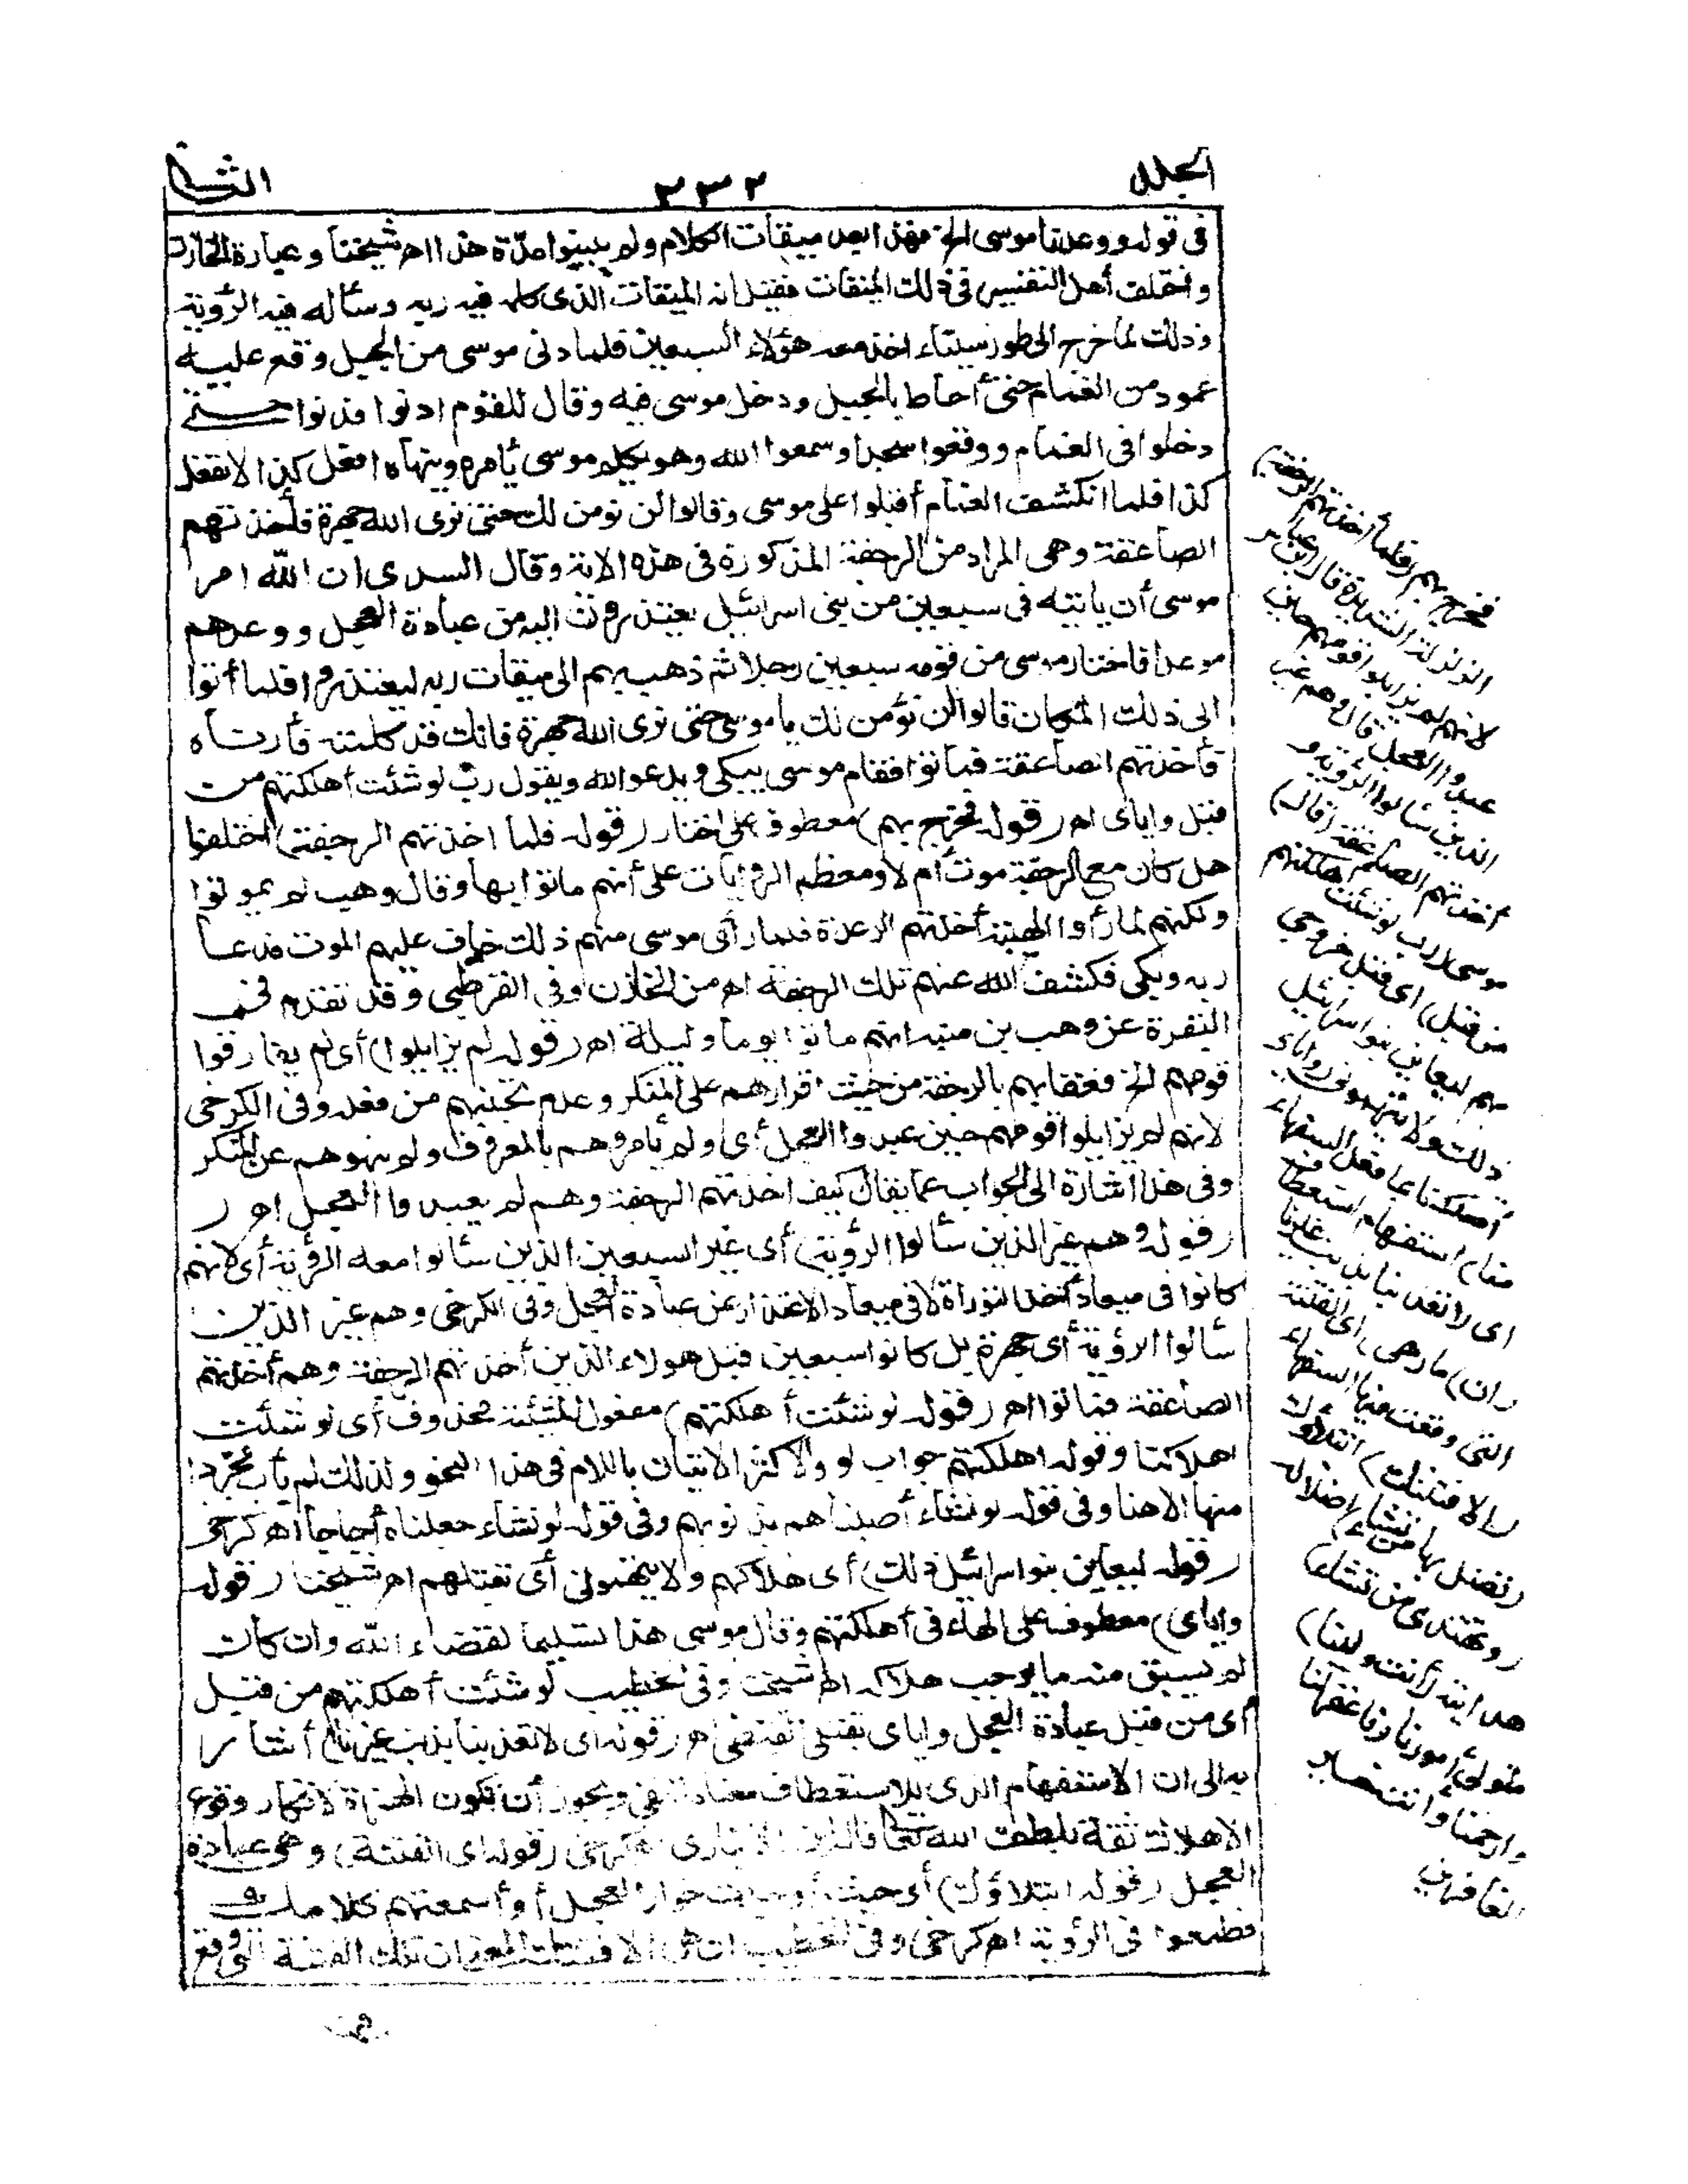 الجلد ٢٣٢ الثانى
فى قوله ووعدنا موسى الخ فهذا بعد ميقات الكلام ولم يبينوا مدّة هذا اه شيخنا وعبارة الخازن
واختلف أهل التفسير فى ذلك الميقات فقيل انه الميقات الذى كلمه فيه ربه وسأله فيه الرؤية
وذلك لما خرج الى طور سيناء اخذ معه هؤلاء السبعين فلما دنى موسى من الجبل وقع عليه
عمود من الغمام حتى أحاط بالجبل ودخل موسى فيه وقال للقوم ادنوا فدنوا حتى
دخلوا فى الغمام ووقعوا سجدا وسمعوا الله وهو يكلم موسى يأمره وينهاه افعل كذا لا تفعل
كذا فلما انكشف الغمام أقبلوا على موسى وقالوا لن نؤمن لك حتى نرى الله جهرة فأخذتهم
الصاعقة وهى المراد من الرجفة المذكورة فى هذه الاية وقال السدى ان الله امر
موسى أن يأتيه فى سبعين من بنى اسرائيل يعتذرون اليه من عبادة العجل ووعدهم
موعدا فاختار موسى من قومه سبعين رجلا ثم ذهب بهم الى ميقات ربه ليعتذروا فلما أتوا
الى ذلك المكان قالوا لن نؤمن لك يا موسى حتى نرى الله جهرة فانك قد كلمته فأرناه
فأخذتهم الصاعقة فماتوا فقام موسى يبكى ويدعو الله ويقول رب لو شئت أهلكتهم من
قبل واياى اه (قوله فخرج بهم) معطوف على اختار (قوله فلما اخذتهم الرجفة) اختلفوا
هل كان مع الرجفة موت أم لا ومعظم الروايات على أنهم ماتوا بها وقال وهب لم يموتوا
ولكنهم لما رأوا الهيبة أخذتهم الرعدة فلما رأى موسى منهم ذلك خاف عليهم الموت فدعا
ربه وبكى فكشف الله عنهم تلك الرجفة اه من الخازن وفى القرطبى وقد تقدم فى
البقرة عن وهب بن منبه انهم ماتوا يوما وليلة اه (قوله لم يزايلوا) أى لم يفارقوا
قومهم الخ فعقابهم بالرجفة من حيث اقرارهم على المنكر وعدم تجنبهم من فعله وفى الكرخى
لانهم لم يزايلوا قومهم حين عبدوا العجل أى ولم يأمروهم بالمعروف ولم ينهوهم عن المنكر
وفى هذا اشارة الى الجواب عما يقال كيف اخذتهم الرجفة وهم لم يعبدوا العجل اه
(قوله وهم غير الذين سألوا الرؤية) أى غير السبعين الذين سألوا معه الرؤية أى لانهم
كانوا فى ميعاد أخذ التوراة لا فى ميعاد الاعتذار عن عبادة العجل وفى الكرخى وهم غير الذين
سألوا الرؤية أى جهرة بل كانوا سبعين قبل هولاء الذين أخذتهم الرجفة وهم أخذتهم
الصاعقة فماتوا اه (قوله لو شئت أهلكتهم) مفعول المشيئة محذوف أى لو شئت
اهلاكنا وقوله اهلكتهم جواب لو والاكثر الاتيان باللام فى هذا النحو ولذلك لم يأت مجردا
منها الا هنا وفى قوله لو نشاء أصبناهم بذنوبهم وفى قوله لو نشاء جعلناه أجاجا اه كرخى
(قوله ليعاين بنو اسرائيل ذلك) أى هلاكهم ولا يتهمونى أى بقتلهم اه شيخنا (قوله
واياى) معطوف على الهاء فى أهلكتهم وقال موسى هذا تسليما لقضاء الله وان كان
لم يسبق منه ما يوجب هلاكه اه شيخنا وفى الخطيب لو شئت أهلكتهم من قبل
أى من قبل عبادة العجل واياى بقتلى القبطى اه (قوله اى لا تعذبنا بذنب غيرنا) أشار
به الى ان الاستفهام الذى للاستعطاف معناه النفى ويجوز أن تكون الهمزة لانكار وقوع
الاهلاك ثقة بلطف الله تعالى قاله ابن الانبارى اه كرخى (قوله اى الفتنة) وهى عبادة
العجل (قوله ابتلاؤك) أى حيث أوجدت خوار العجل أو أسمعتهم كلامك
فطمعوا فى الرؤية اه كرخى وفى الخطيب ان هى الا فتنتك المعنى ان تلك الفتنة التى وقع
فخرج بهم (فلما أخذتهم الرجفة)
الزلزلة الشديدة قال ابن عباس
لانهم لم يزايلوا قومهم حين
عبدوا العجل قال وهم غير
الذين سألوا الرؤية و
أخذتهم الصاعقة (قال)
موسى (رب لو شئت أهلكتهم
من قبل) اى قبل خروجى
بهم ليعاين بنو اسرائيل
ذلك ولا يتهمونى (واياى
أتهلكنا بما فعل السفهاء
منا) استفهام استعطاف
اى لا تعذبنا بذنب غيرنا
(ان) ما (هى) اى الفتنة
التى وقعت فيها السفهاء
(الا فتنتك) ابتلاؤك
(تضل بها من تشاء) اضلاله
(وتهتدى من تشاء)
هدايته (أنت ولينا)
متولى أمورنا (فاغفر لنا
وارحمنا وأنت خير
الغافرين